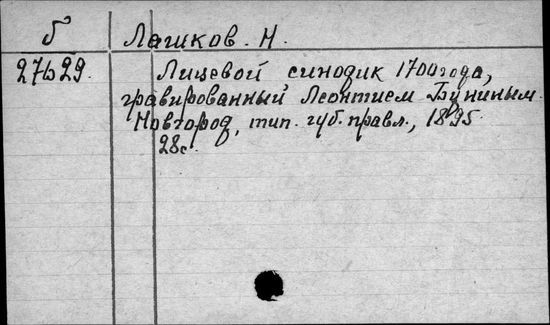 б Лашков. Н.
27629. Лицевой синодик 1700 года,
гравированный Леонтием Буниным.
Новгород, тип. губ. правл., 1895.
28с.